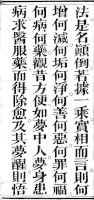 法是名顚倒若據一乘實相而言則何
增何減何垢何淨何善何惡何罪何福
何病何藥觀昔方便如夢中人夢身患
病求醫服藥而得除愈及其夢醒則悟